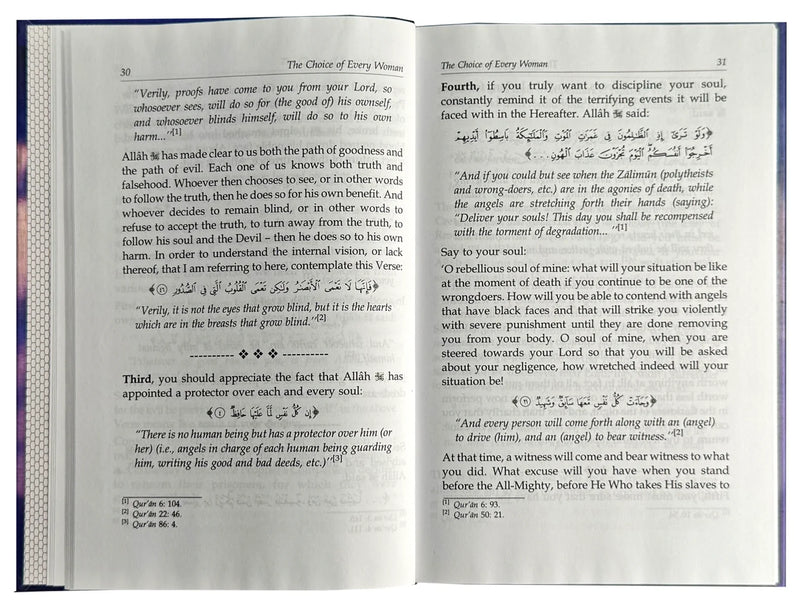 30 The Choice of Every Woman
"Verily, proofs have come to you from your Lord, so
whosoever sees, will do so for (the good of) his ownself,
and whosoever blinds himself, will do so to his own
harm..."[1]
Allâh ﷻ has made clear to us both the path of goodness and
the path of evil. Each one of us knows both truth and
falsehood. Whoever then chooses to see, or in other words
to follow the truth, then he does so for his own benefit. And
whoever decides to remain blind, or in other words to
refuse to accept the truth, to turn away from the truth, to
follow his soul and the Devil – then he does so to his own
harm. In order to understand the internal vision, or lack
thereof, that I am referring to here, contemplate this Verse:
﴿فَإِنَّهَا لَا تَعْمَى الْأَبْصَارُ وَلَكِن تَعْمَى الْقُلُوبُ الَّتِي فِي الصُّدُورِ ٤٦﴾
"Verily, it is not the eyes that grow blind, but it is the hearts
which are in the breasts that grow blind."[2]
---------- ❖ ❖ ❖ ----------
Third, you should appreciate the fact that Allâh ﷻ has
appointed a protector over each and every soul:
﴿إِن كُلُّ نَفْسٍ لَّمَّا عَلَيْهَا حَافِظٌ ٤﴾
"There is no human being but has a protector over him (or
her) (i.e., angels in charge of each human being guarding
him, writing his good and bad deeds, etc.)"[3]
[1] Qur'ân 6: 104.
[2] Qur'ân 22: 46.
[3] Qur'ân 86: 4.
The Choice of Every Woman 31
Fourth, if you truly want to discipline your soul,
constantly remind it of the terrifying events it will be
faced with in the Hereafter. Allâh ﷻ said:
﴿وَلَوْ تَرَى إِذِ الظَّالِمُونَ فِي غَمَرَاتِ الْمَوْتِ وَالْمَلَائِكَةُ بَاسِطُوا أَيْدِيهِمْ
أَخْرِجُوا أَنفُسَكُمُ الْيَوْمَ تُجْزَوْنَ عَذَابَ الْهُونِ...﴾
"And if you could but see when the Zâlimûn (polytheists
and wrong-doers, etc.) are in the agonies of death, while
the angels are stretching forth their hands (saying):
"Deliver your souls! This day you shall be recompensed
with the torment of degradation... "[1]
Say to your soul:
'O rebellious soul of mine: what will your situation be like
at the moment of death if you continue to be one of the
wrongdoers. How will you be able to contend with angels
that have black faces and that will strike you violently
with severe punishment until they are done removing
you from your body. O soul of mine, when you are
steered towards your Lord so that you will be asked
about your negligence, how wretched indeed will your
situation be!
﴿وَجَاءَتْ كُلُّ نَفْسٍ مَّعَهَا سَائِقٌ وَشَهِيدٌ ٢١﴾
"And every person will come forth along with an (angel)
to drive (him), and an (angel) to bear witness."[2]
At that time, a witness will come and bear witness to what
you did. What excuse will you have when you stand
before the All-Mighty, before He Who takes His slaves to
[1] Qur'ân 6: 93.
[2] Qur'ân 50: 21.